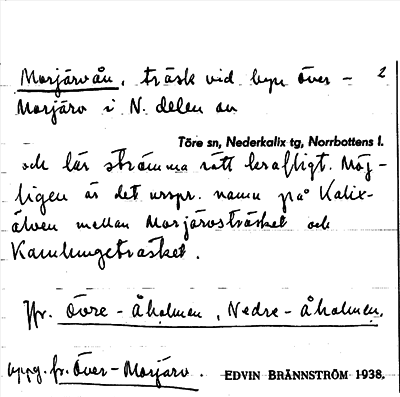 Morjärvån, träsk vid byn Över- 2
Morjärv i N. delen av
Töre sn, Nederkalix tg, Norrbottens l.
och lär strömma rätt kraftigt. Möj-
ligen är det urspr. namn på Kalix-
älven mellan Morjärvsträsket och
Kamlungeträsket.
Jfr. Övre-åholmen, Nedre-åholmen,
uppg. fr. Över-Morjärv. EDVIN BRÄNNSTRÖM 1938.